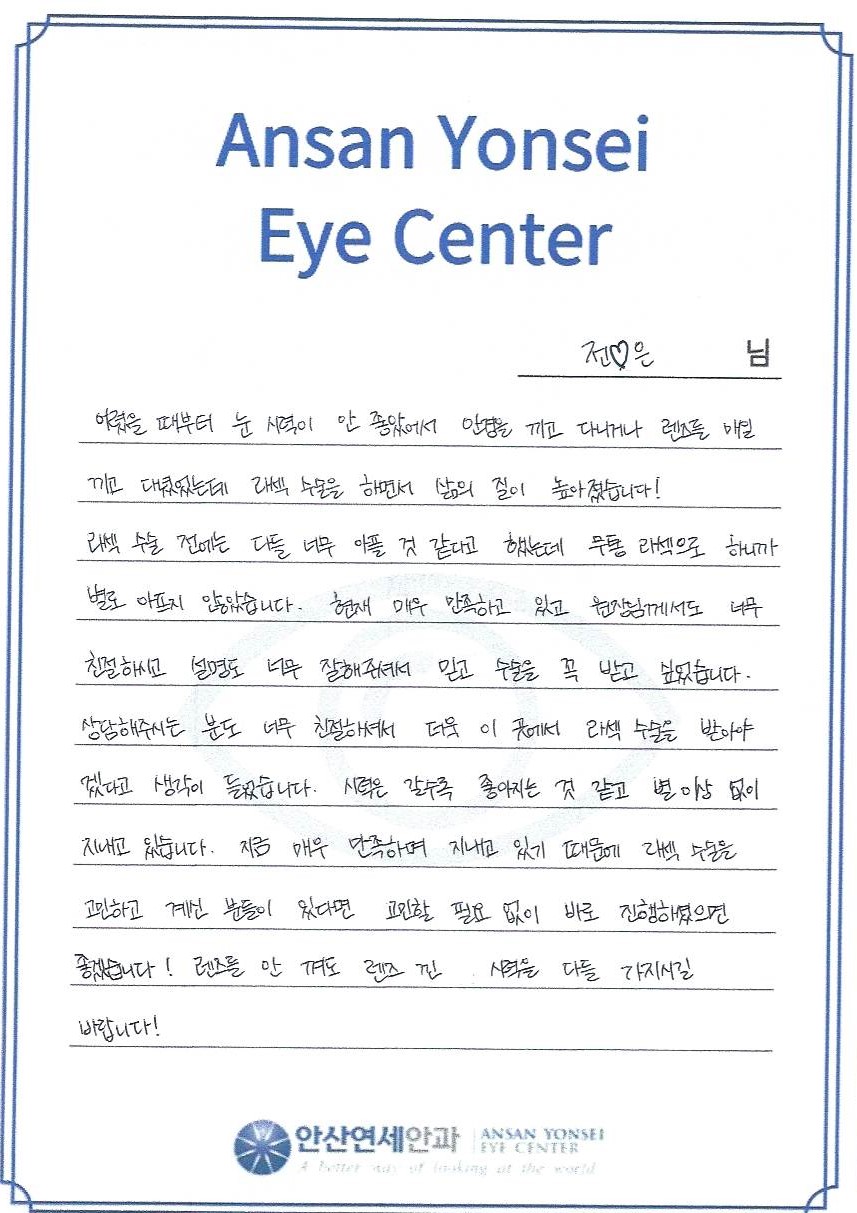 Ansan Yonsei
Eye Center
전♡은 님
어렸을 때부터 눈 시력이 안 좋았에서 안경을 끼고 다니거나 렌즈를 매일
끼고 대녔었는데 라섹 수술을 하면서 삶의 질이 높아졌습니다!
라섹 수술 전에는 다들 너무 아플 것 같다고 했는데 무통 라섹으로 하니까
별로 아프지 않았습니다. 현재 매우 만족하고 있고 원장님께서도 너무
친절하시고 설명도 너무 잘해주셔서 믿고 수술을 꼭 받고 싶었습니다.
상담해주시는 분도 너무 친절하셔서 더욱 이 곳에서 라섹 수술을 받아야
겠다고 생각이 들었습니다. 시력은 갈수록 좋아지는 것 같고 별 이상 없이
지내고 있습니다. 지금 매우 만족하며 지내고 있기 때문에 라섹 수술을
고민하고 계신 분들이 있다면 고민할 필요 없이 바로 진행하셨으면
좋겠습니다! 렌즈를 안 껴도 렌즈 낀 시력을 다들 가지시길
바랍니다!
안산연세안과 ANSAN YONSEI
EYE CENTER
A better way of looking at the world